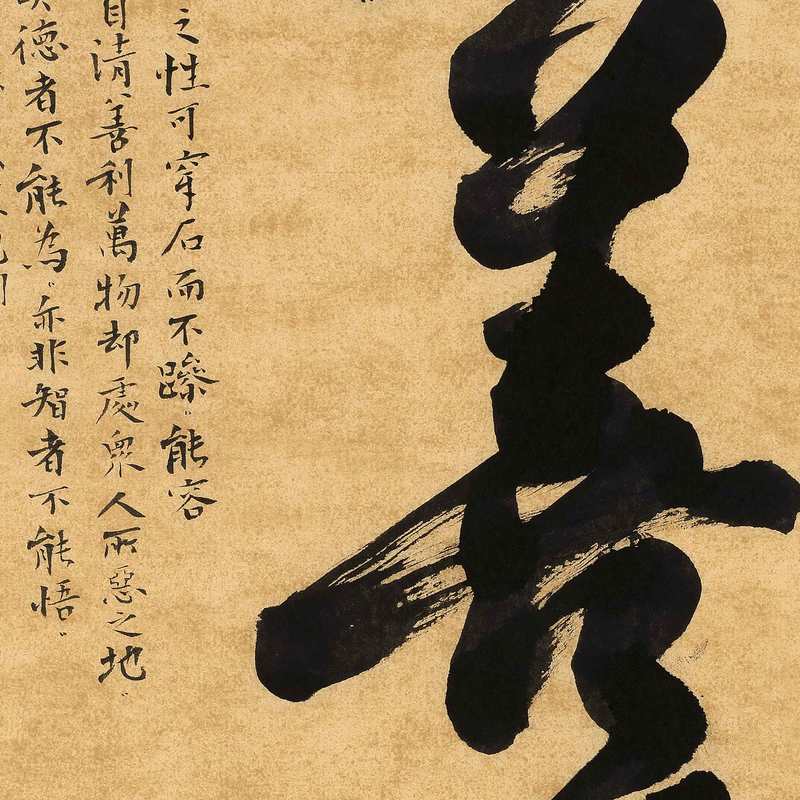 善
之性可穿石而不躁能容
自清善利萬物却處衆人所惡之地
德者不能為亦非智者不能悟